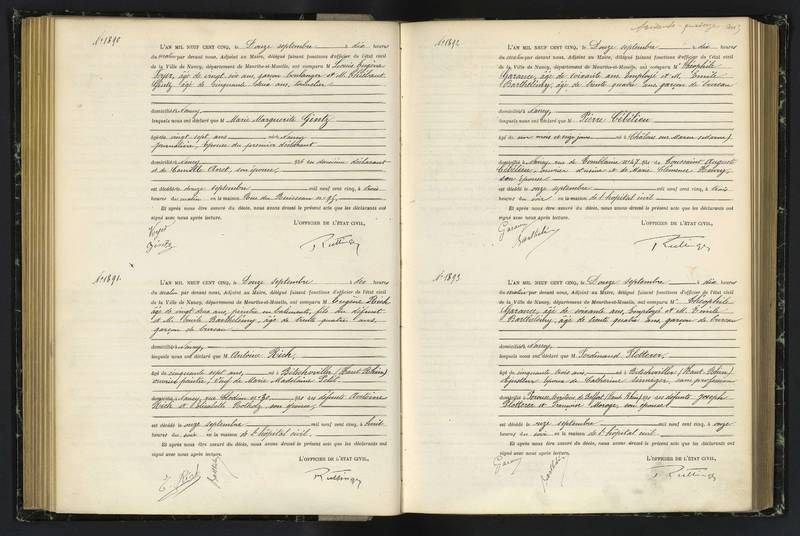 N° 1890
L'AN MIL NEUF CENT CINQ, le Douze septembre à dix heures
du matin par devant nous, Adjoint au Maire, délégué faisant fonctions d'officier de l'état civil
de la Ville de Nancy, département de Meurthe-et-Moselle, ont comparu M Louis Eugène
âgé de vingt six ans, garçon boulanger et M.
Gentz âgé de cinquante
domiciliés à Nancy
lesquels nous ont déclaré que M Marie Marguerite Gentz
âgée de vingt sept ans née à Nancy
journalière, épouse du premier déclarant
domiciliée à Nancy fille du deuxième déclarant
et de Camille son épouse,
est décédée le douze septembre mil neuf cent cinq, à trois
heures du matin en la maison Rue du Ruisseau n° 95,
Et après nous être assuré du décès, nous avons dressé le présent acte que les déclarants ont
signé avec nous après lecture.
L'OFFICIER DE L'ÉTAT CIVIL,
Gentz
Ruttinger
N° 1891.
L'AN MIL NEUF CENT CINQ, le Douze septembre à dix heures
du matin par devant nous, Adjoint au Maire, délégué faisant fonctions d'officier de l'état civil
de la Ville de Nancy, département de Meurthe-et-Moselle, ont comparu M Eugène Rich
âgé de vingt deux ans, peintre en bâtiments, fils du défunt
et M. Emile Barthélémy, âgé de trente quatre ans,
garçon de bureau
domiciliés à Nancy
lesquels nous ont déclaré que M Antoine Rich,
âgé de cinquante sept ans, né à Bitschwiller (Haut Rhin)
ouvrier peintre, Veuf de Marie Madelaine
domicilié à Nancy, rue n° 90 fils des défunts Antoine
Rich et Elisabeth son épouse,
est décédé le onze septembre mil neuf cent cinq, à huit
heures du soir en la maison de l'hôpital civil
Et après nous être assuré du décès, nous avons dressé le présent acte que les déclarants ont
signé avec nous après lecture.
L'OFFICIER DE L'ÉTAT CIVIL,
E. Rich
Ruttinger
N° 1892
L'AN MIL NEUF CENT CINQ, le Douze septembre à dix heures
du matin par devant nous, Adjoint au Maire, délégué faisant fonctions d'officier de l'état civil
de la Ville de Nancy, département de Meurthe-et-Moselle, ont comparu M Théophile
Garance, âgé de soixante ans, Employé et M. Emile
Barthélémy, âgé de trente quatre ans garçon de bureau
domiciliés à Nancy,
lesquels nous ont déclaré que M Pierre Cibélieu
âgé de mois et onze jours né à Châlons sur Marne (Marne)
domicilié à Nancy, rue de n° 47 fils de Toussaint Auguste
Cibélieu, ouvrier d'usine et de Marie Clémence
son épouse
est décédé le onze septembre mil neuf cent cinq, à trois
heures du soir en la maison de l'hôpital civil
Et après nous être assuré du décès, nous avons dressé le présent acte que les déclarants ont
signé avec nous après lecture.
L'OFFICIER DE L'ÉTAT CIVIL,
Ruttinger
N° 1893
L'AN MIL NEUF CENT CINQ, le Douze septembre à dix heures
du matin par devant nous, Adjoint au Maire, délégué faisant fonctions d'officier de l'état civil
de la Ville de Nancy, département de Meurthe-et-Moselle, ont comparu M Théophile
Garance, âgé de soixante ans, Employé et M. Emile
Barthélémy, âgé de trente quatre ans garçon de bureau
domiciliés à Nancy,
lesquels nous ont déclaré que M Ferdinand Plotterer,
âgé de cinquante trois ans, né à Bitschwiller (Haut Rhin)
époux de Catherine sans profession
domicilié à territoire de Belfort (Haut Rhin) fils des défunts Joseph
Plotterer et son épouse
est décédé le onze septembre mil neuf cent cinq, à onze
heures du soir en la maison de l'hôpital civil
Et après nous être assuré du décès, nous avons dressé le présent acte que les déclarants ont
signé avec nous après lecture.
L'OFFICIER DE L'ÉTAT CIVIL,
Ruttinger